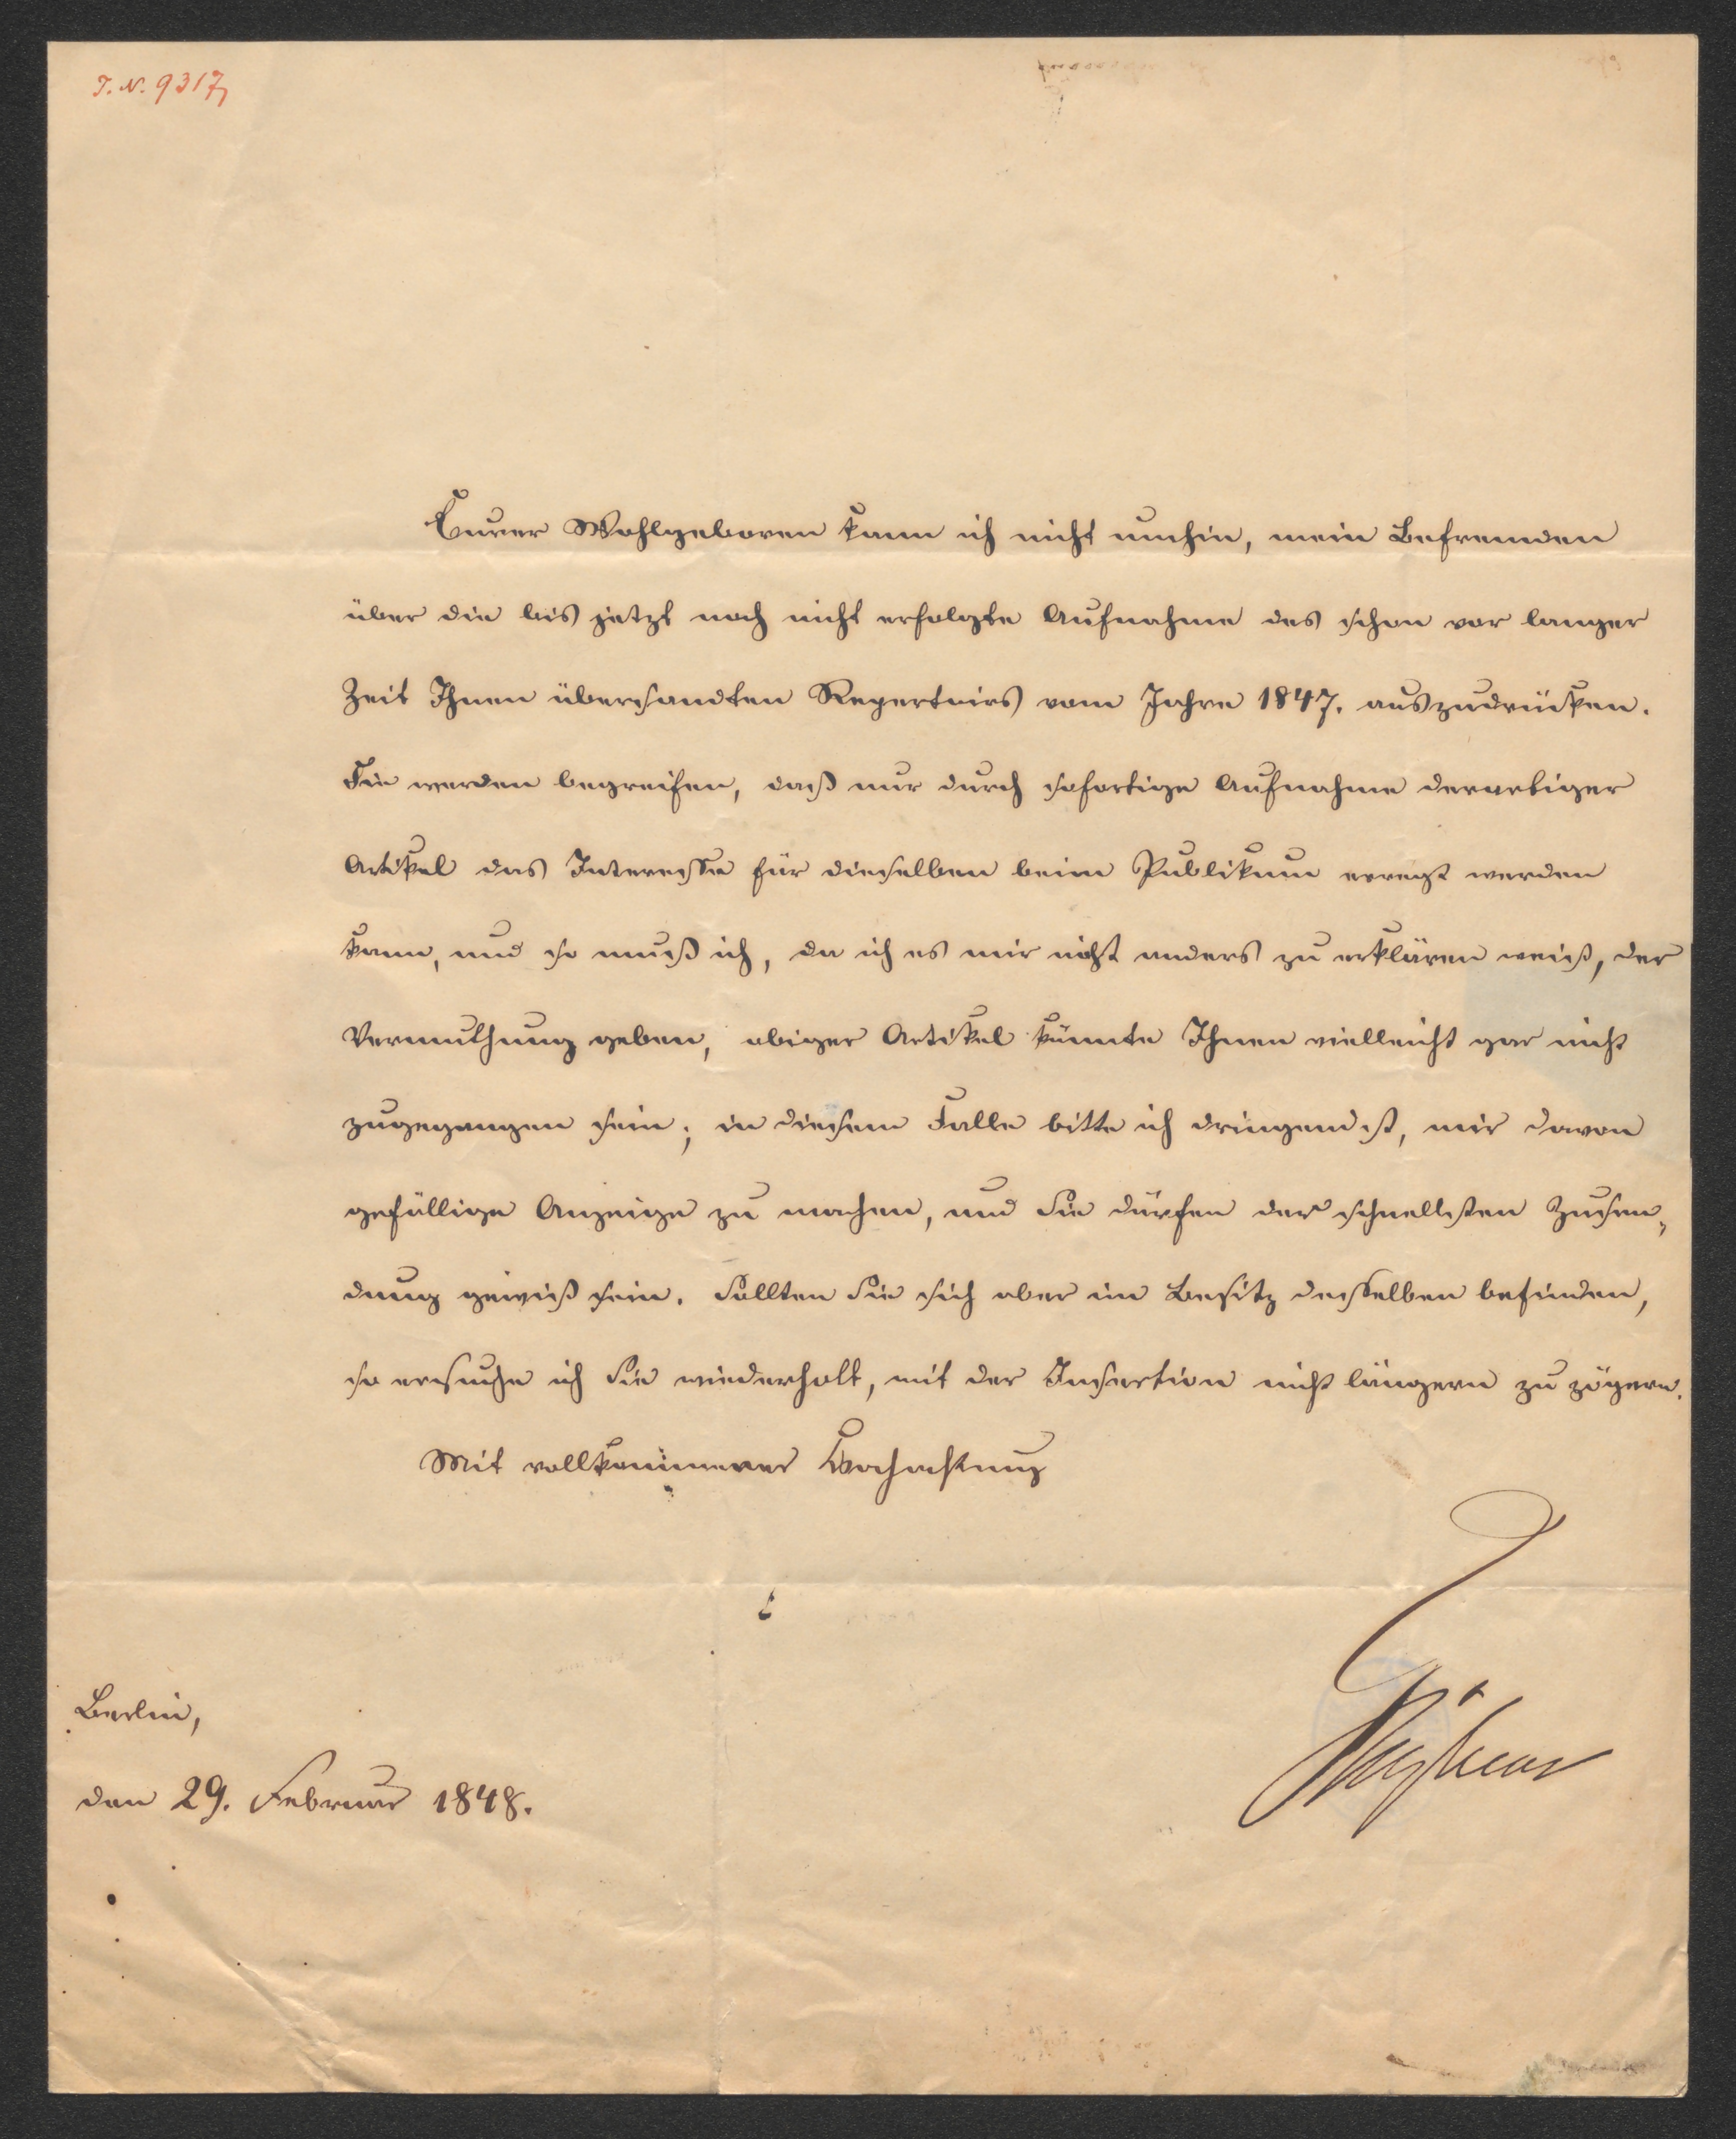 I. N. 9317
Eurer Wohlgeboren kann ich nicht umhin, mein Befremden
über die bis jetzt noch nicht erfolgte Aufnahme des schon vor langer
Zeit Ihnen übersandten Repertoirs vom Jahre 1847. auszudrücken.
Sie werden begreifen, daß nur durch sofortige Aufnahme derartiger
Artikel das Interesse für dieselben beim Publikum erregt werden
kann, und so muß ich, da ich es mir nicht anders zu erklären weiß, der
Vermuthung geben, obiger Artikel könnte Ihnen vielleicht gar nicht
zugegangen sein; in diesem Falle bitte ich dringendst, mir davon
gefällige Anzeige zu machen, und Sie dürfen der schnellsten Zusen-
dung gewiß sein. Sollten Sie sich aber im Besitz desselben befinden,
so ersuche ich Sie wiederholt, mit der Insertion nicht längern zu zögern.
Mit vollkommener Hochachtung
Berlin,
den 29. Februar 1848.